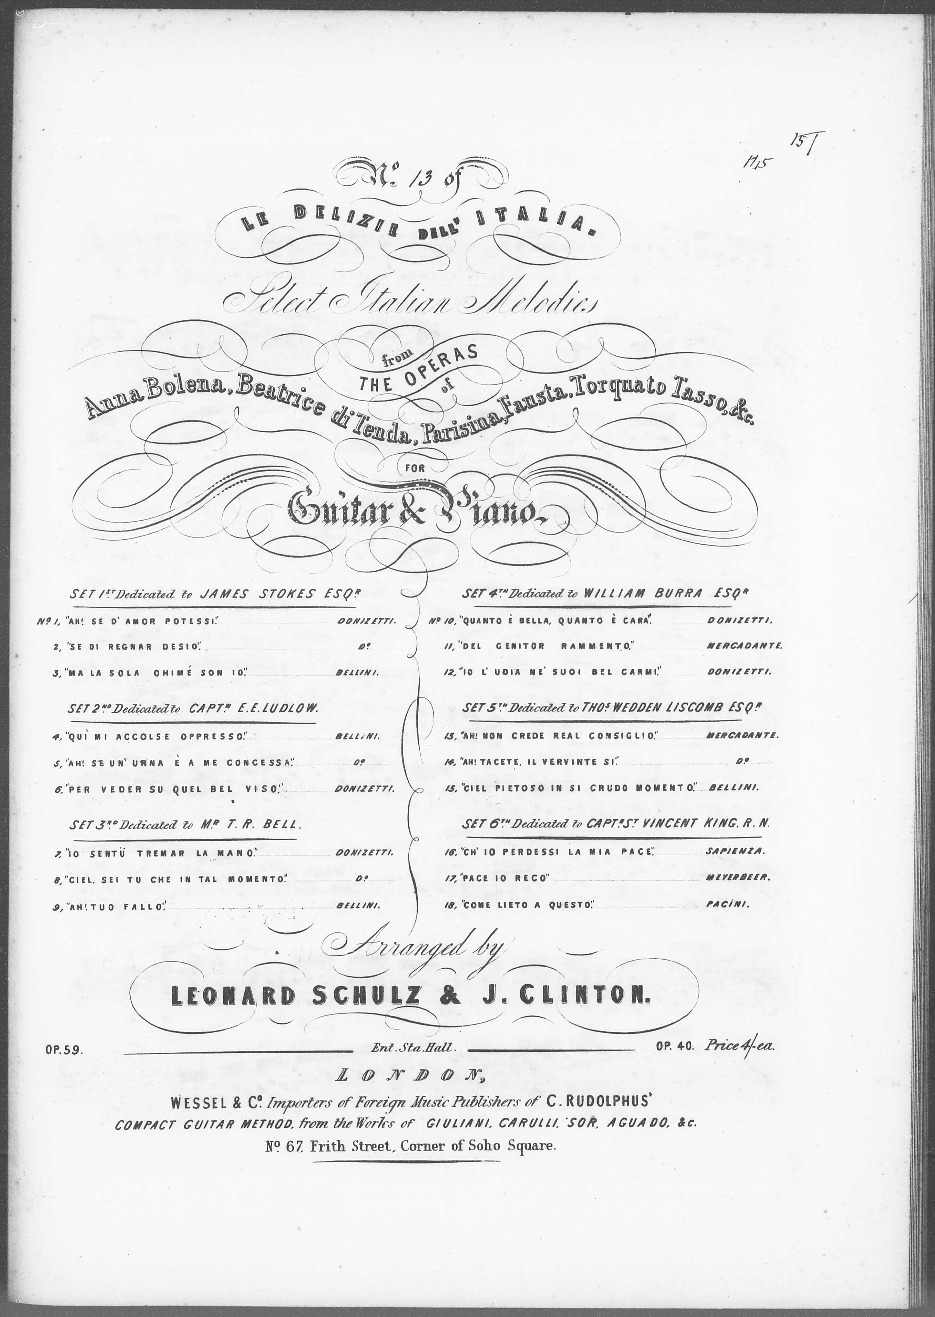 15/
1715
No. 13 of
LE DELIZIE DELL' ITALIA.
Select Italian Melodies
from
THE OPERAS
of
Anna Bolena, Beatrice di Tenda, Parisina, Fausta, Torquato Tasso, &c.
FOR
Guitar & Piano.
SET 1ST Dedicated to JAMES STOKES ESQR
No 1, "AH! SE D' AMOR POTESSI." DONIZETTI.
2, "SE DI REGNAR DESIO." Do
3, "MA LA SOLA OHIMÉ SON IO." BELLINI.
SET 2ND Dedicated to CAPTN E. E. LUDLOW.
4, "QUI MI ACCOLSE OPPRESSO." BELLINI.
5, "AH! SE UN' URNA È A ME CONCESSA." Do
6, "PER VEDER SU QUEL BEL VISO." DONIZETTI.
SET 3RD Dedicated to MR T. R. BELL.
7, "IO SENTÜ TREMAR LA MANO." DONIZETTI.
8, "CIEL, SEI TU CHE IN TAL MOMENTO." Do
9, "AH! TUO FALLO." BELLINI.
SET 4TH Dedicated to WILLIAM BURRA ESQR
No 10, "QUANTO È BELLA, QUANTO È CARA". DONIZETTI.
11, "DEL GENITOR RAMMENTO." MERCADANTE.
12, "IO L' UDIA NE' SUOI BEL CARMI." DONIZETTI.
SET 5TH Dedicated to THOS WEDDEN LISCOMB ESQR
13, "AH! NON CREDE REAL CONSIGLIO." MERCADANTE.
14, "AH! TACETE, IL VERVINTE SI." Do
15, "CIEL PIETOSO IN SI CRUDO MOMENTO." BELLINI.
SET 6TH Dedicated to CAPTN ST VINCENT KING, R. N.
16, "CH' IO PERDESSI LA MIA PACE". SAPIENZA.
17, "PACE IO RECO" MEYERBEER.
18, "COME LIETO A QUESTO." PACINI.
Arranged by
LEONARD SCHULZ & J. CLINTON.
OP. 59. Ent. Sta. Hall. OP. 40. Price 4/- ea.
LONDON,
WESSEL & Co. Importers of Foreign Music Publishers of C. RUDOLPHUS'
COMPACT GUITAR METHOD, from the Works of GIULIANI, CARULLI, SOR, AGUADO, &c.
No. 67, Frith Street, Corner of Soho Square.